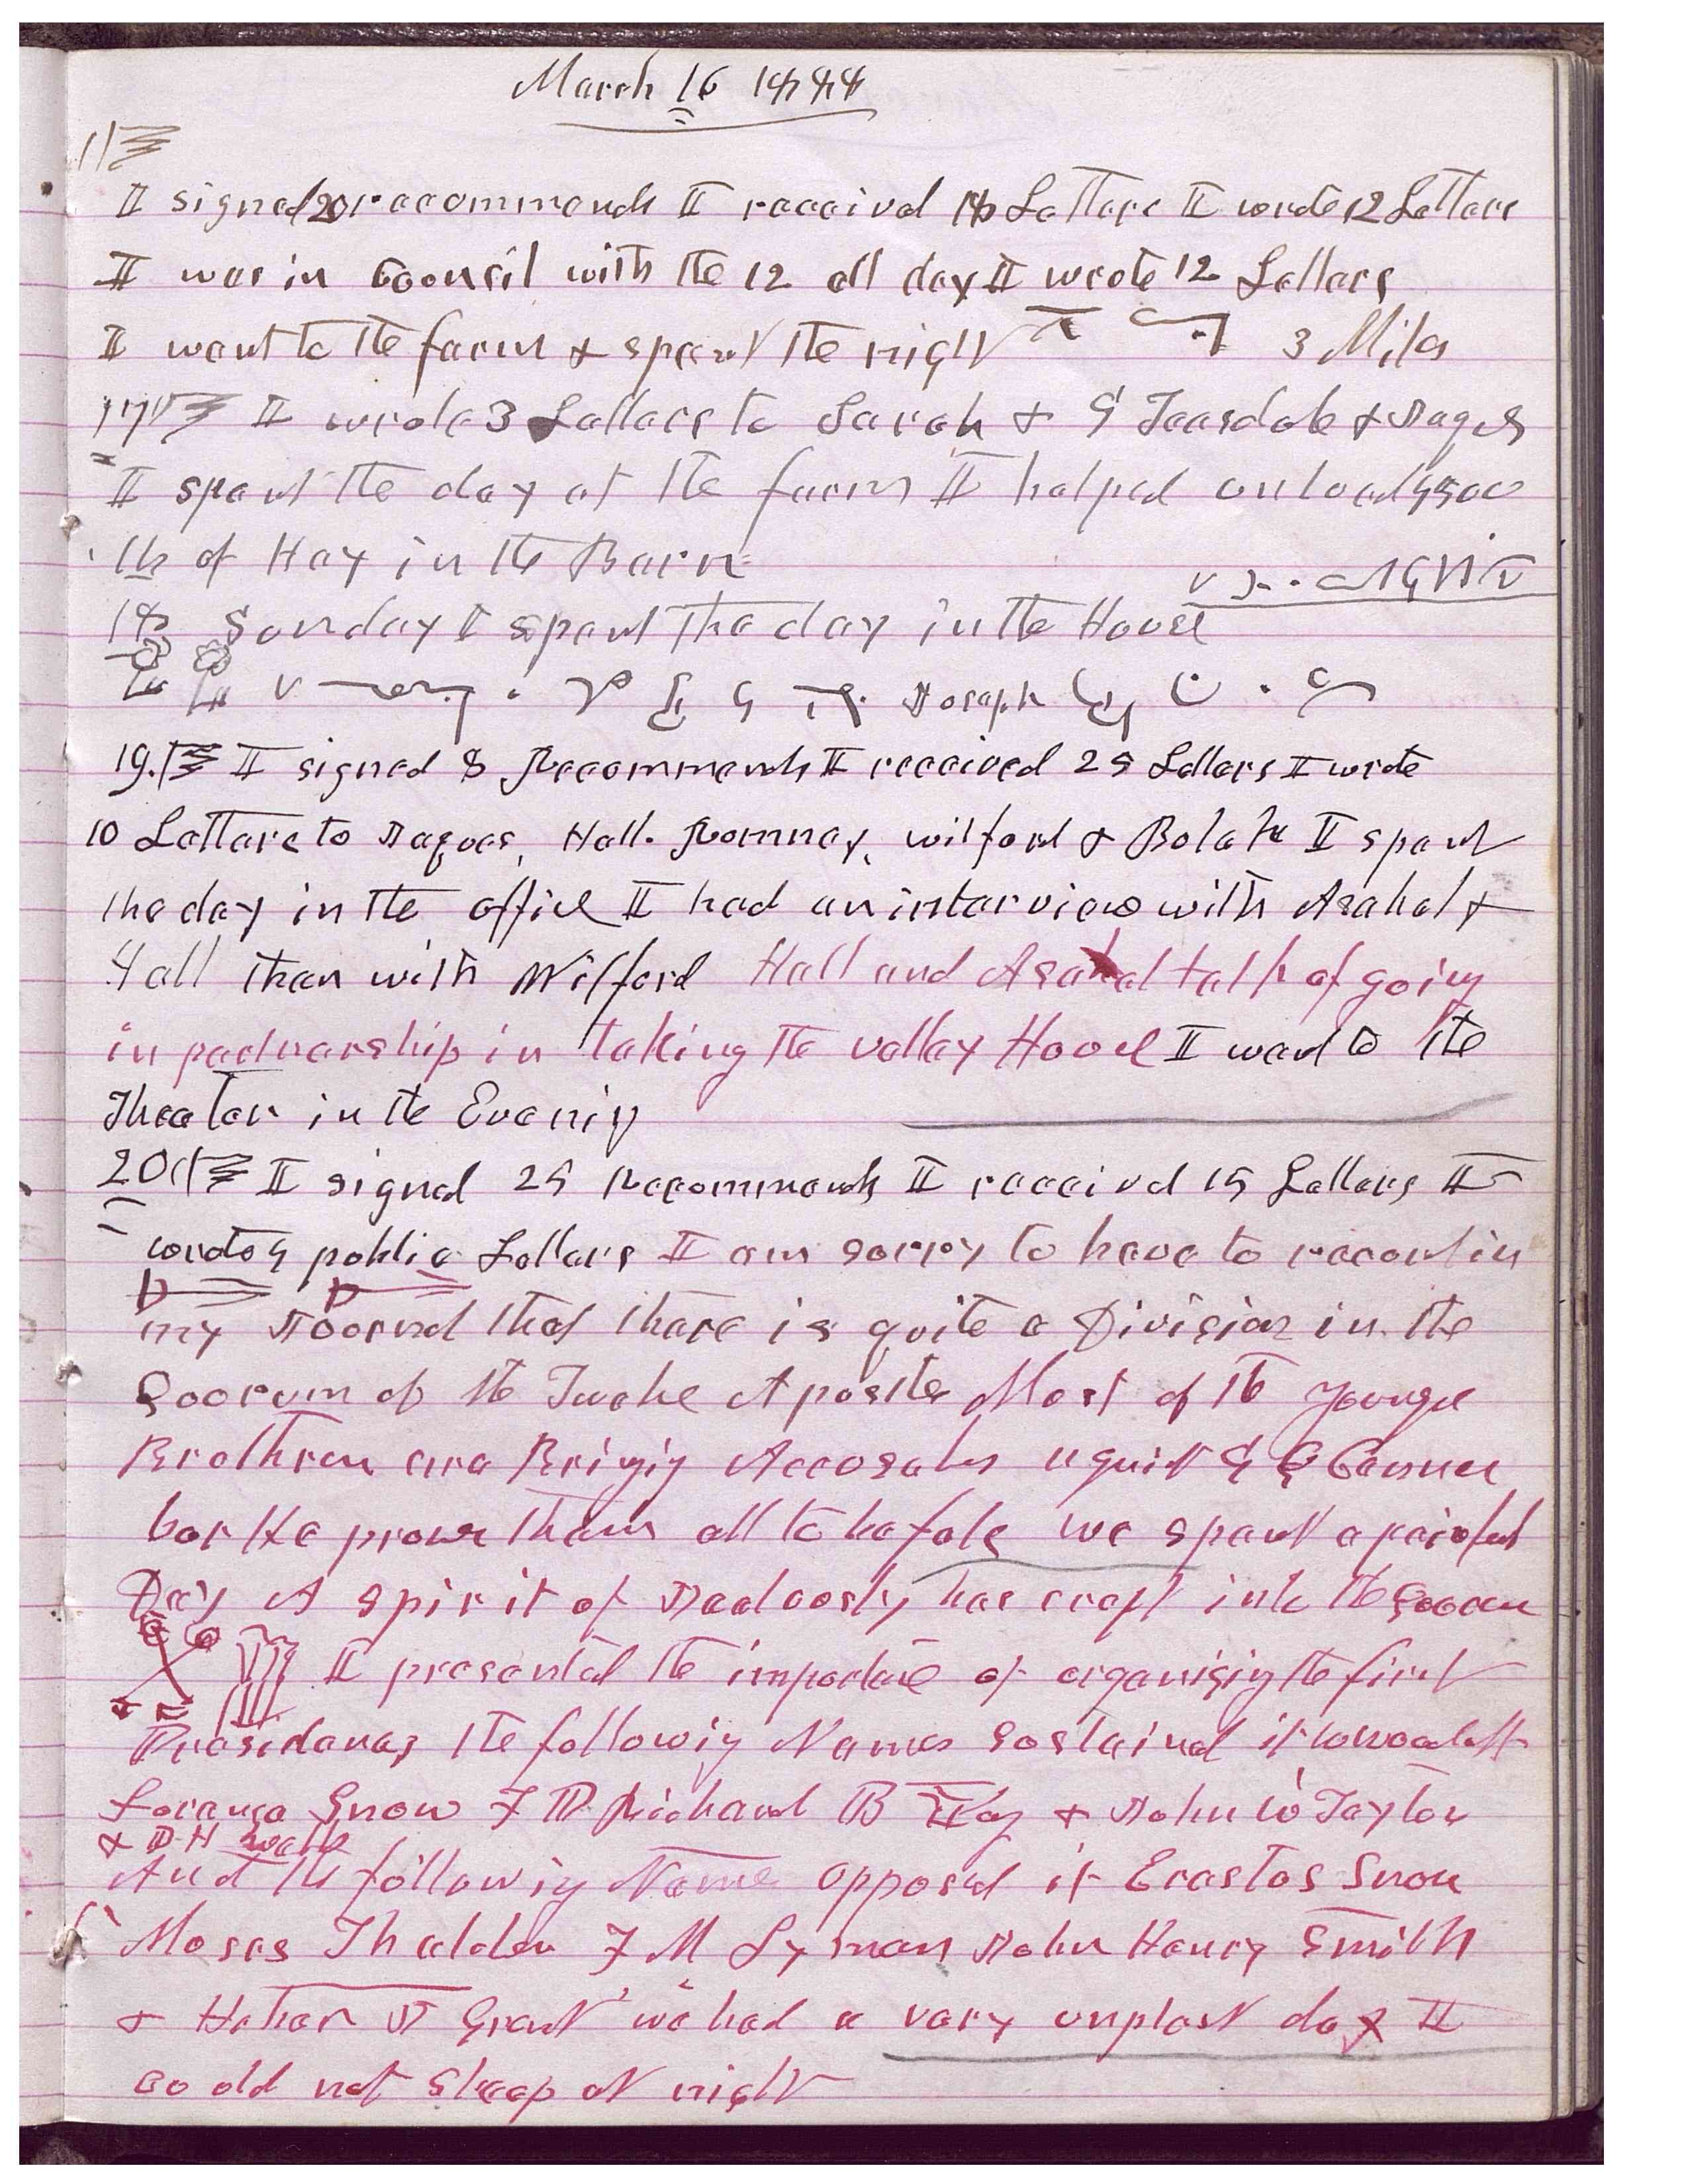 March 16 1888
I signed 20 recommends I received 18 Letters I wrote 12 Letters
I was in Council with the 12 all day I wrote 12 Letters
I went to the farm & spent the night 3 Miles
17 I wrote 3 Letters to Sarah & G Teasdale & Jaques
I spent the day at the farm I helped unload 4500
lb of Hay in the Barn
18 Sunday I spent the day in the House
Joseph
19. I signed 8 Recommends I received 25 Letters I wrote
10 Letters to Jaques, Hall. Romney, wilford & Bolah I spent
the day in the office I had an interview with Asahel &
Hall then with Wilford Hall and Asahel talk of going
in padnership in taking the valley House I went to the
Theater in the Evening
20 I signed 25 Recommends I received 15 Letters I
wrote 4 public Letters I am sorry to have to record in
my Journal that there is quite a Division in the
Quorum of the Twelve Apostles Most of the Younger
Brethren are Bringing Accusations against G Q Cannon
but He prove them all to be fals we spent a painful
Day A spirit of Jealousy has crept into the Quorum
I presented the importance of organising the first
Presidency the following Names sustained it W Woodruff
Lorenzo Snow F D Richard B Young & John W Taylor
& D H Wells
And the following Names opposed it Erastus Snow
Moses Thatcher F M Lyman John Henry Smith
& Heber J Grant we had a very unplesent day I
could not sleep at night